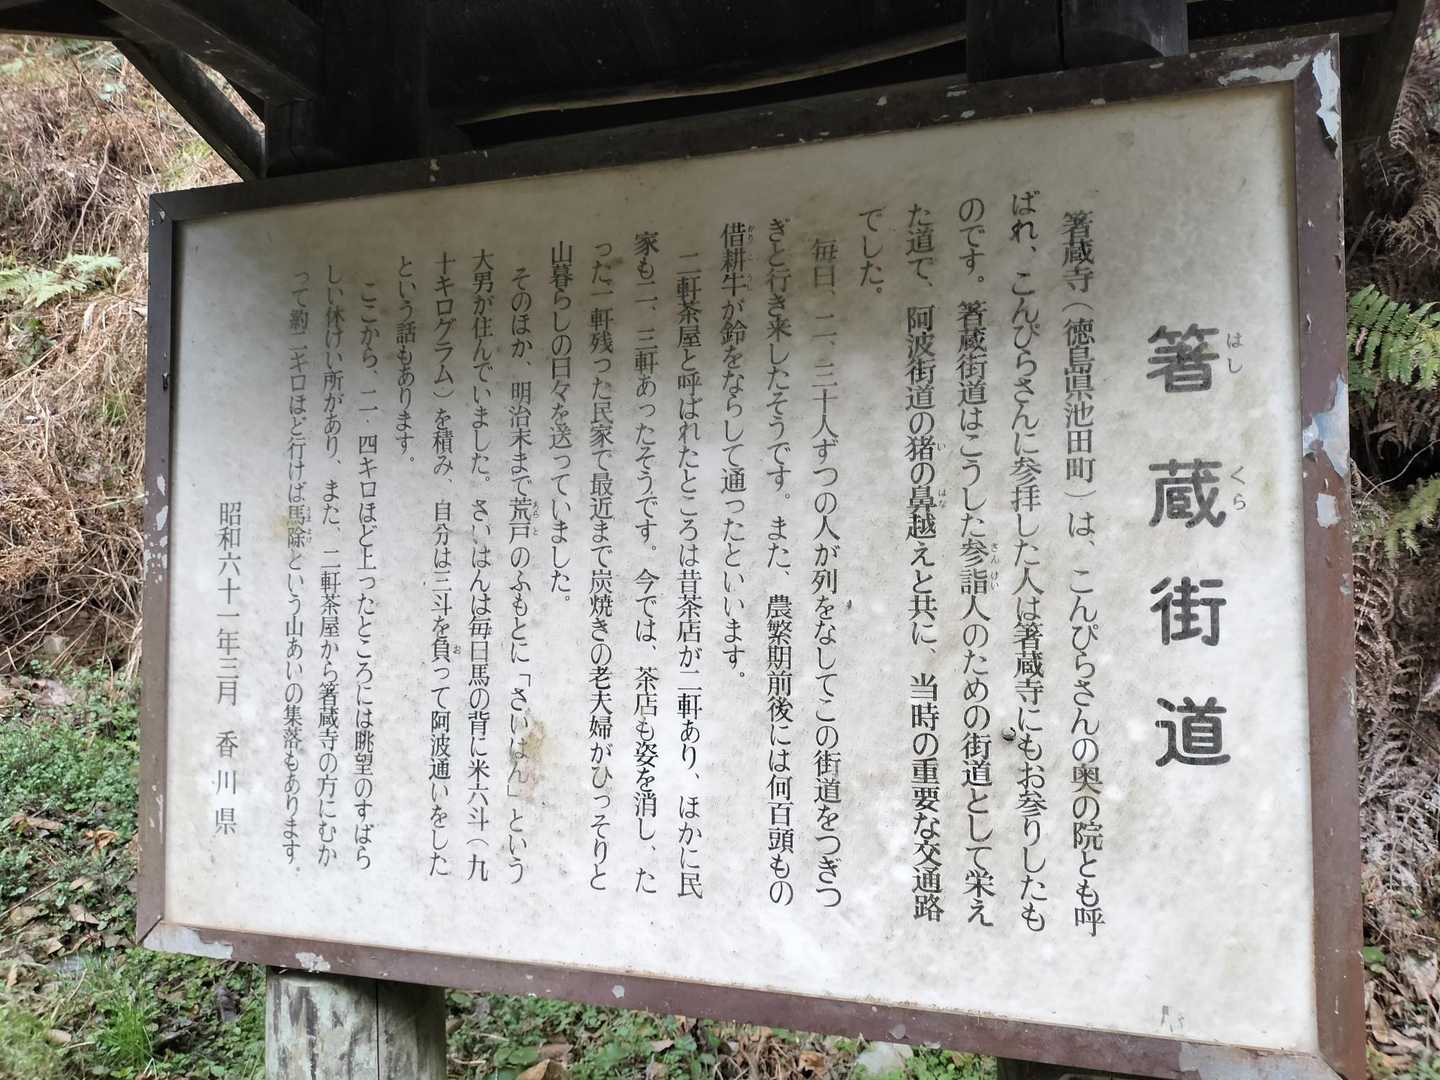 箸蔵街道
はしくら
箸蔵寺（徳島県池田町）は、こんぴらさんの奥の院とも呼
ばれ、こんぴらさんに参拝した人は箸蔵寺にもお参りしたも
のです。箸蔵街道はこうした参詣人のための街道として栄え
さんけい
た道で、阿波街道の猪の鼻越えと共に、当時の重要な交通路
い はな
でした。
毎日、二、三十人ずつの人が列をなしてこの街道をつぎつ
ぎと行き来したそうです。また、農繁期前後には何百頭もの
借耕牛が鈴をならして通ったといいます。
二軒茶屋と呼ばれたところは昔茶店が二軒あり、ほかに民
家も二、三軒あったそうです。今では、茶店も姿を消し、た
った一軒残った民家で最近まで炭焼きの老夫婦がひっそりと
山暮らしの日々を送っていました。
そのほか、明治末まで荒戸のふもとに「さいはん」という
あらと
大男が住んでいました。さいはんは毎日馬の背に米六斗（九
十キログラム）を積み、自分は三斗を負って阿波通いをした
お
という話もあります。
ここから、二・四キロほど上ったところには眺望のすばら
しい休けい所があり、また、二軒茶屋から箸蔵寺の方にむか
って約二キロほど行けば馬除という山あいの集落もあります。
昭和六十一年三月 香川県